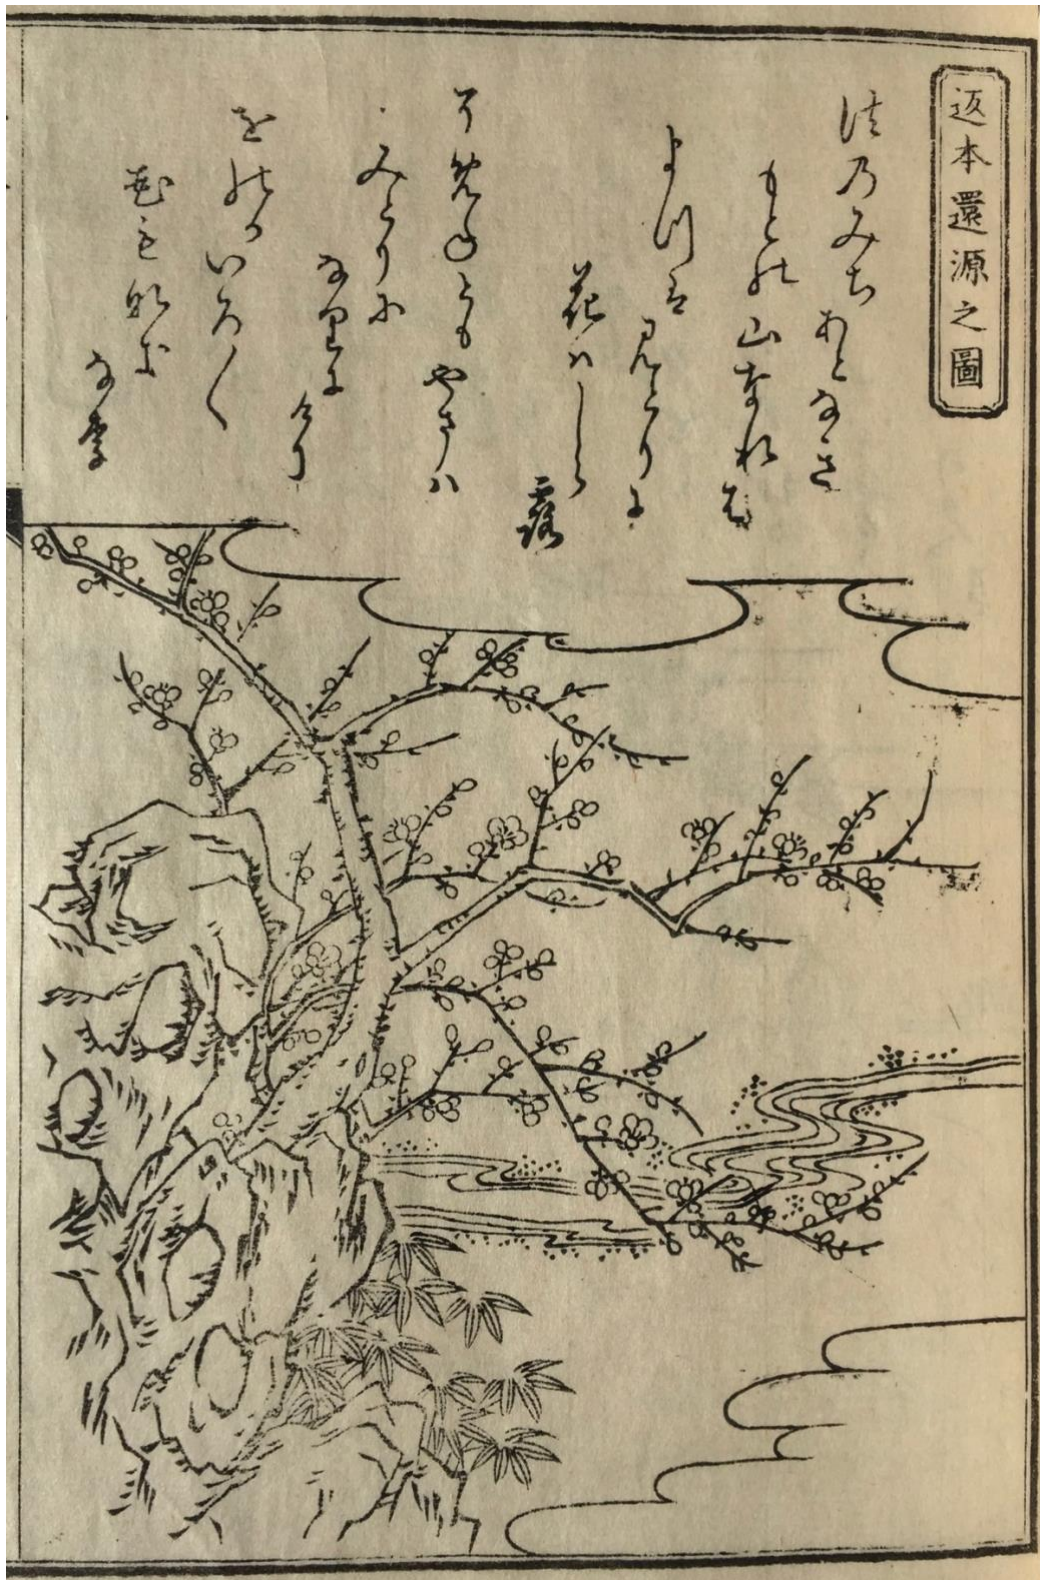 返本還源之圖
法乃みちあとなき
もとの山なれは
まつはみとりに
花ハしら露
そめねともやまハ
みとりに
なりにけり
をのかいろ〱
花も